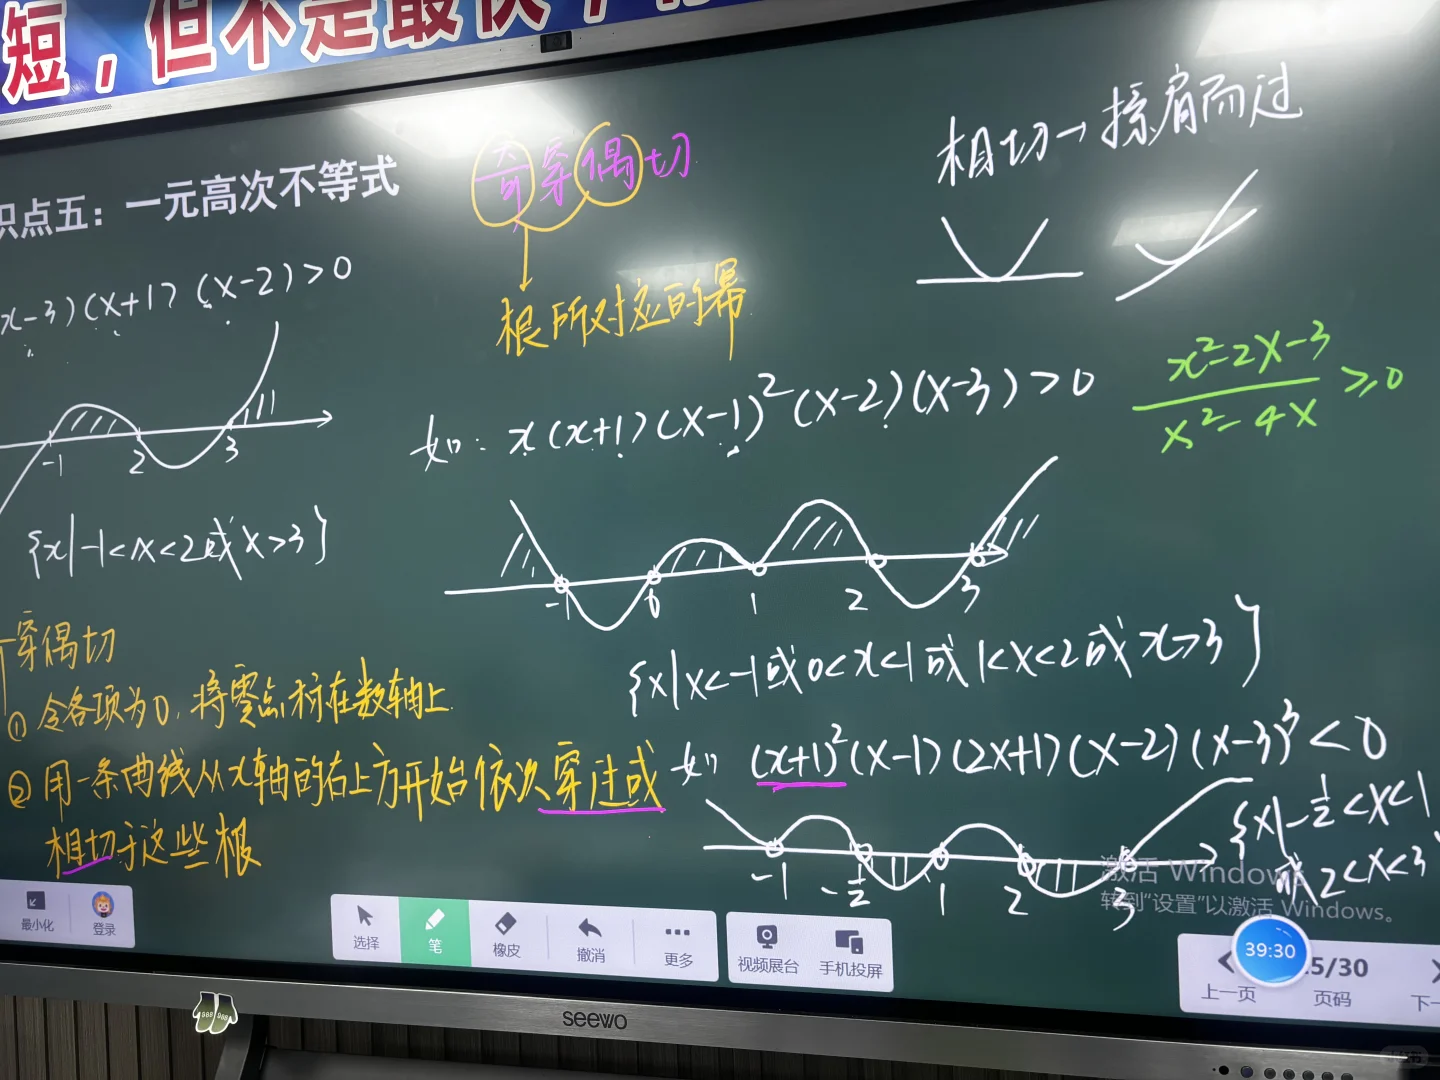 短，但不是最快
识点五：一元高次不等式
x-3)(x+1)(x-2)>0
-1 2 3
{x|-1<x<2或x>3}
奇穿偶切
根所对应的幂
相切→擦肩而过
如：x(x+1)(x-1)²(x-2)(x-3)>0
x²-2x-3
x²-4x
≥0
-1 0 1 2 3
{x|x<-1或0<x<1或1<x<2或x>3}
穿偶切
①令各项为0，将零点标在数轴上
②用一条曲线从x轴的右上方开始依次穿过或
相切于这些根
如 (x+1)²(x-1)(2x+1)(x-2)(x-3)³<0
-1 -1/2 1 2 3
{x|-1/2<x<1
或2<x<3
激活 Windows
转到"设置"以激活 Windows。
最小化 登录
选择 笔 橡皮 撤消 更多
视频展台 手机投屏
上一页 5/30 页码 下一
39:30
seewo